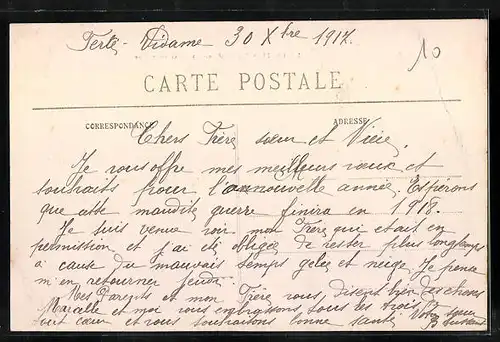 Ferté-Vidame 30 Xbre 1917.
10
CARTE POSTALE
CORRESPONDANCE
ADRESSE
Chers Frère sœur et Nièce
Je vous offre mes meilleurs vœux et
souhaits pour la nouvelle année. Espérons
que cette maudite guerre finira en 1918.
Je suis venue voir mon Frère qui était en
permission et j'ai été obligée de rester plus longtemps
à cause du mauvais temps gelée et neige. Je pense
m'en retourner jeudi.
Mes Parents et mon Frère vous disent bien des choses
Marcelle et moi vous embrassons tous les trois
tout cœur et vous souhaitons bonne santé Votre sœur